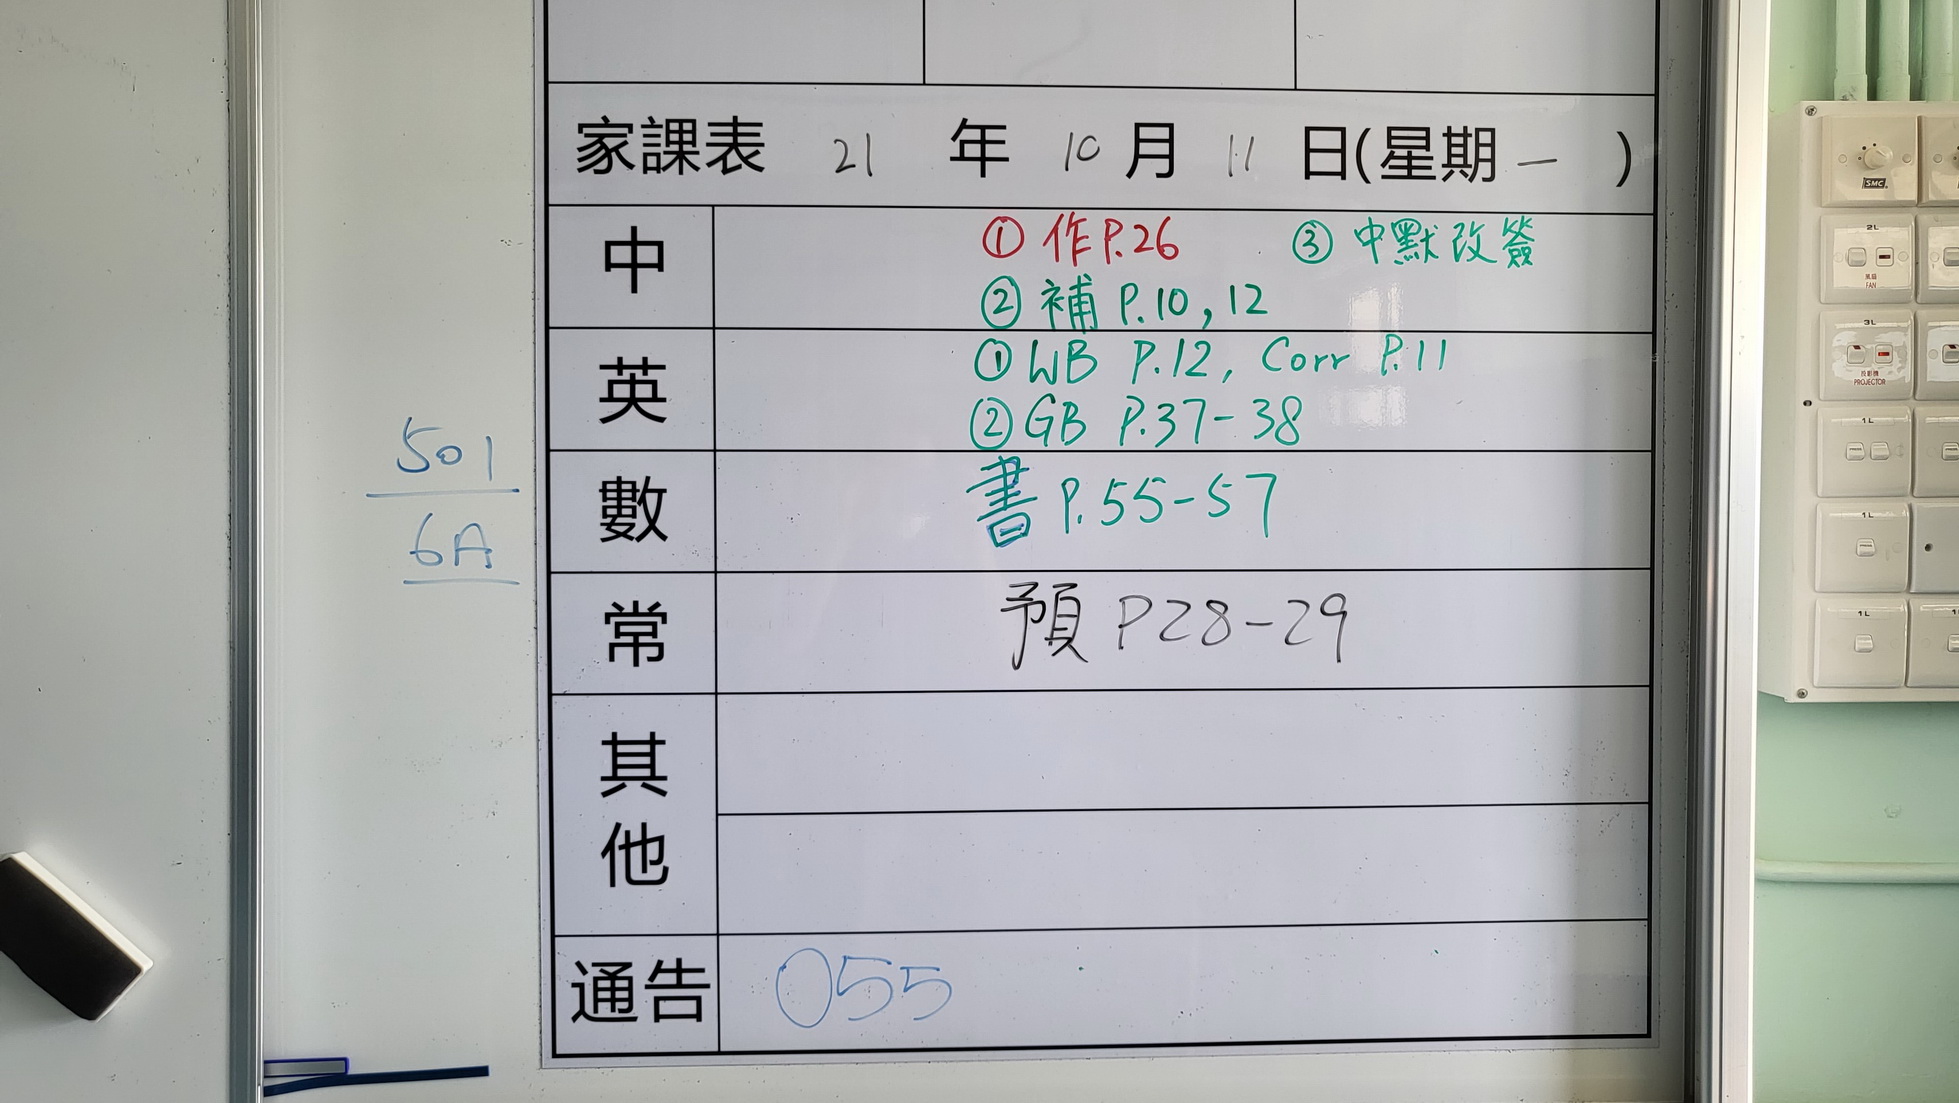 家課表 21 年 10 月 11 日(星期一 )
中 ① 作P.26 ③ 中默改簽
② 補 P.10, 12
英 ① WB P.12, Corr P.11
② GB P.37-38
數 書 P.55-57
常 預 P28-29
其他
通告 055
501
6A
SMC
2L
風扇
FAN
3L
投影機
PROJECTOR
1L
1L
1L